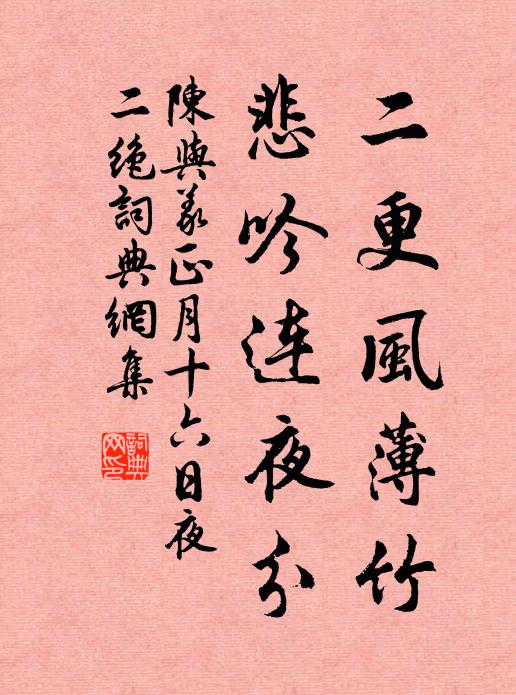 二更風薄竹
悲吟連夜分
陳與義正月十六日夜
二絶詞典網集
詞典网印